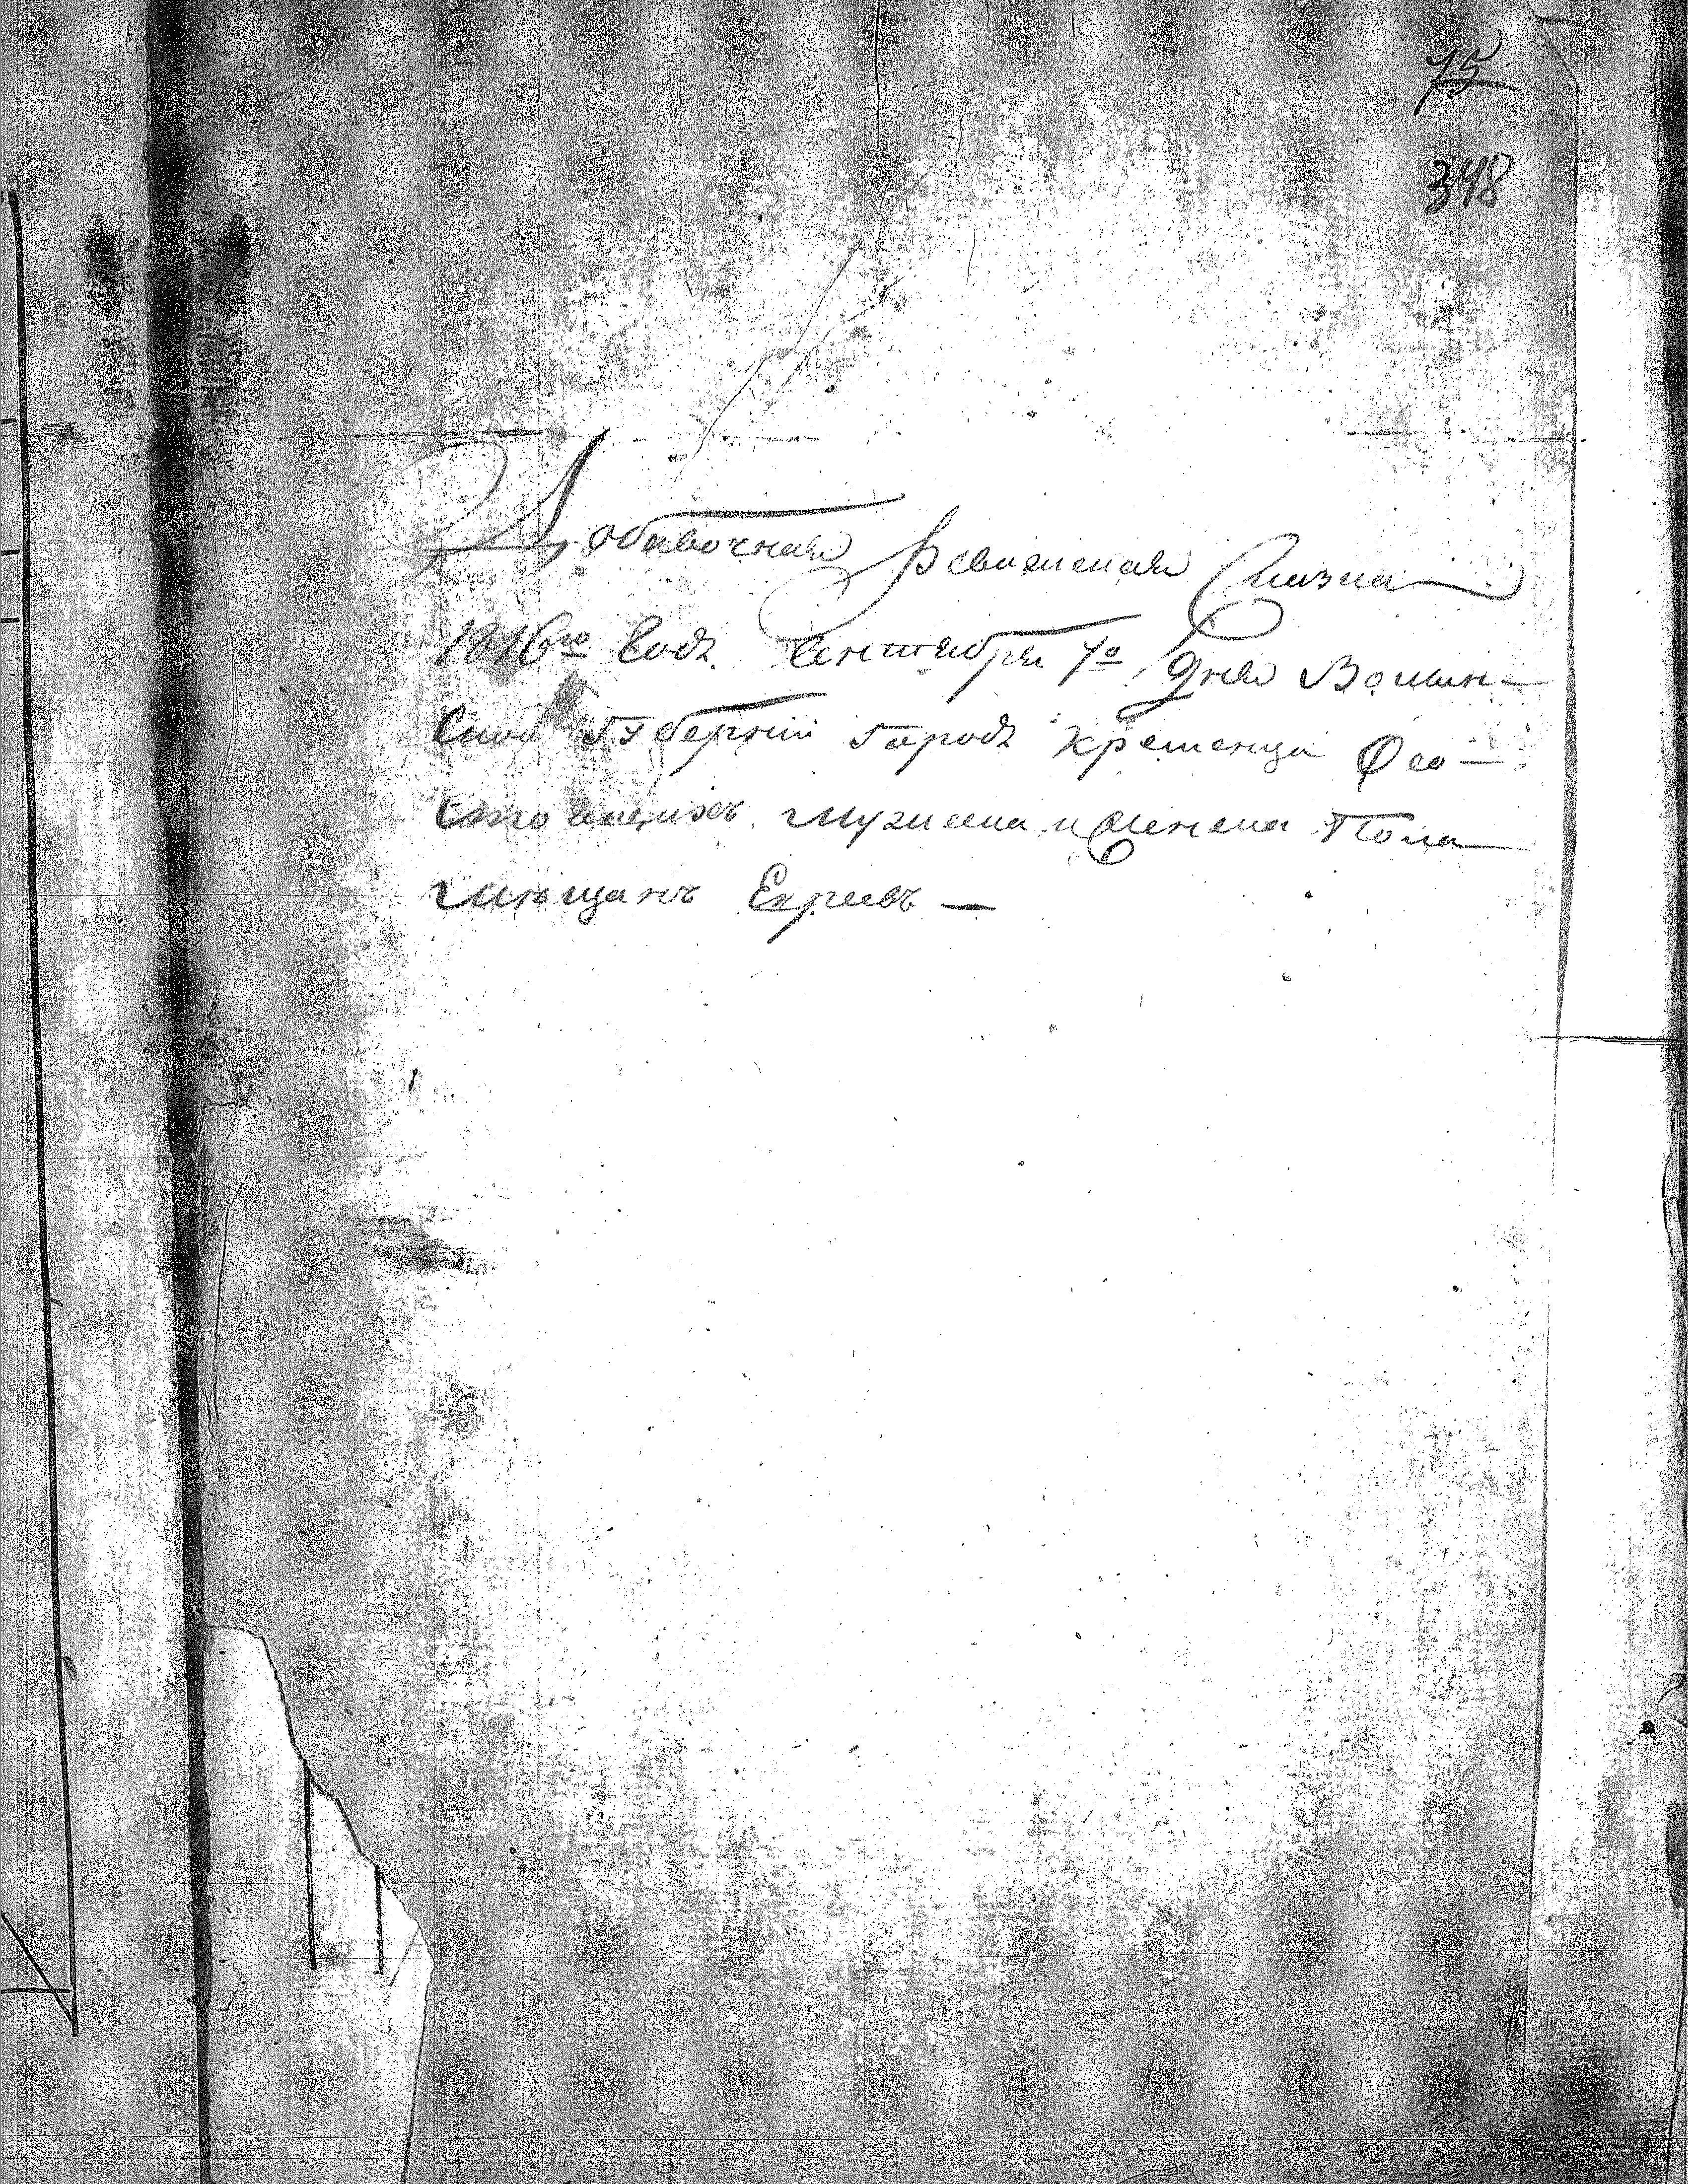 75
348
Добавочная Ревизская Сказка
1816го Года Сентября 7о дня Волын-
Ской Губернии города Кременца О со-
стоящихъ мужеска и женска Пола
мѣщанъ Евреевъ —